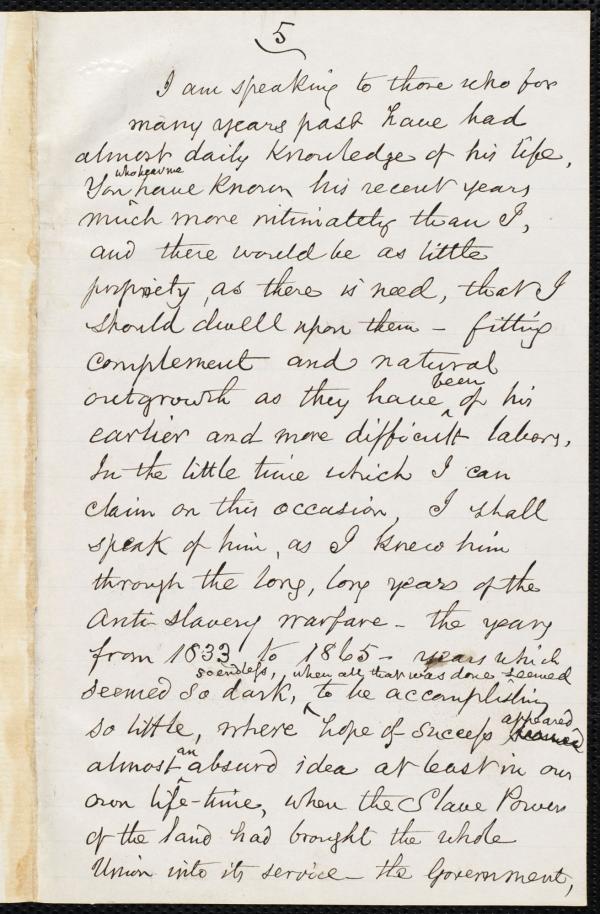 5
I am speaking to those who for
many years past have had
almost daily knowledge of his life.
who hear me
You have known his recent years
much more intimately than I,
and there would be as little
propriety, as there is need, that I
should dwell upon them – fitting
complement and natural
been
outgrowth as they have ^ of his
earlier and more difficult labors.
In the little time which I can
claim on this occasion, I shall
speak of him, as I knew him
through the long, long years of the
Anti-Slavery warfare – the years
from 1833 to 1865 – years which
so endless, when all that was done seemed
seemed so dark, ^ to be accomplishing
so little, where hope of success appeared
almost an absurd idea at least in our
own life-time, when the Slave Power
of the land had brought the whole
Union into its service – the Government,